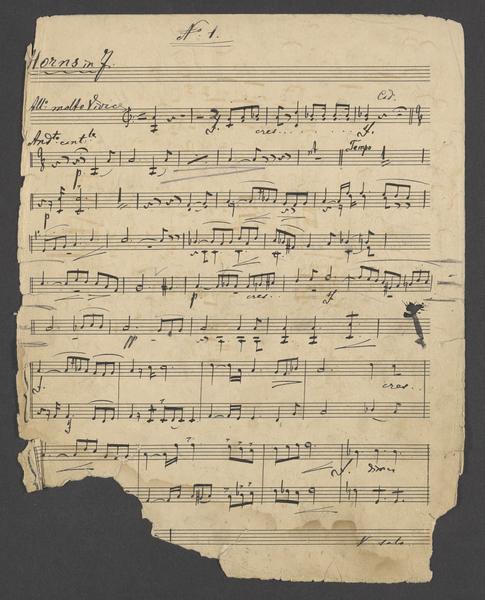 No. 1.
Horns in F.
Allo. molto Vivace
cres..
f.
Andte. cont.
Tempo
p.
p
p
cres..
f
pp
f.
cres..
f
f. dimin
V solo